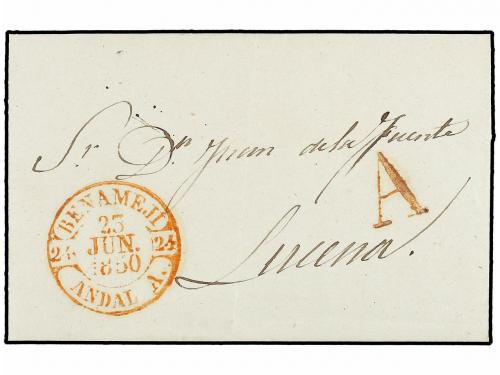 Sr. Dn Juan de la Fuente
A
Lucena.
BENAMEJI
23
JUN.
1850
24 24
ANDAL A.